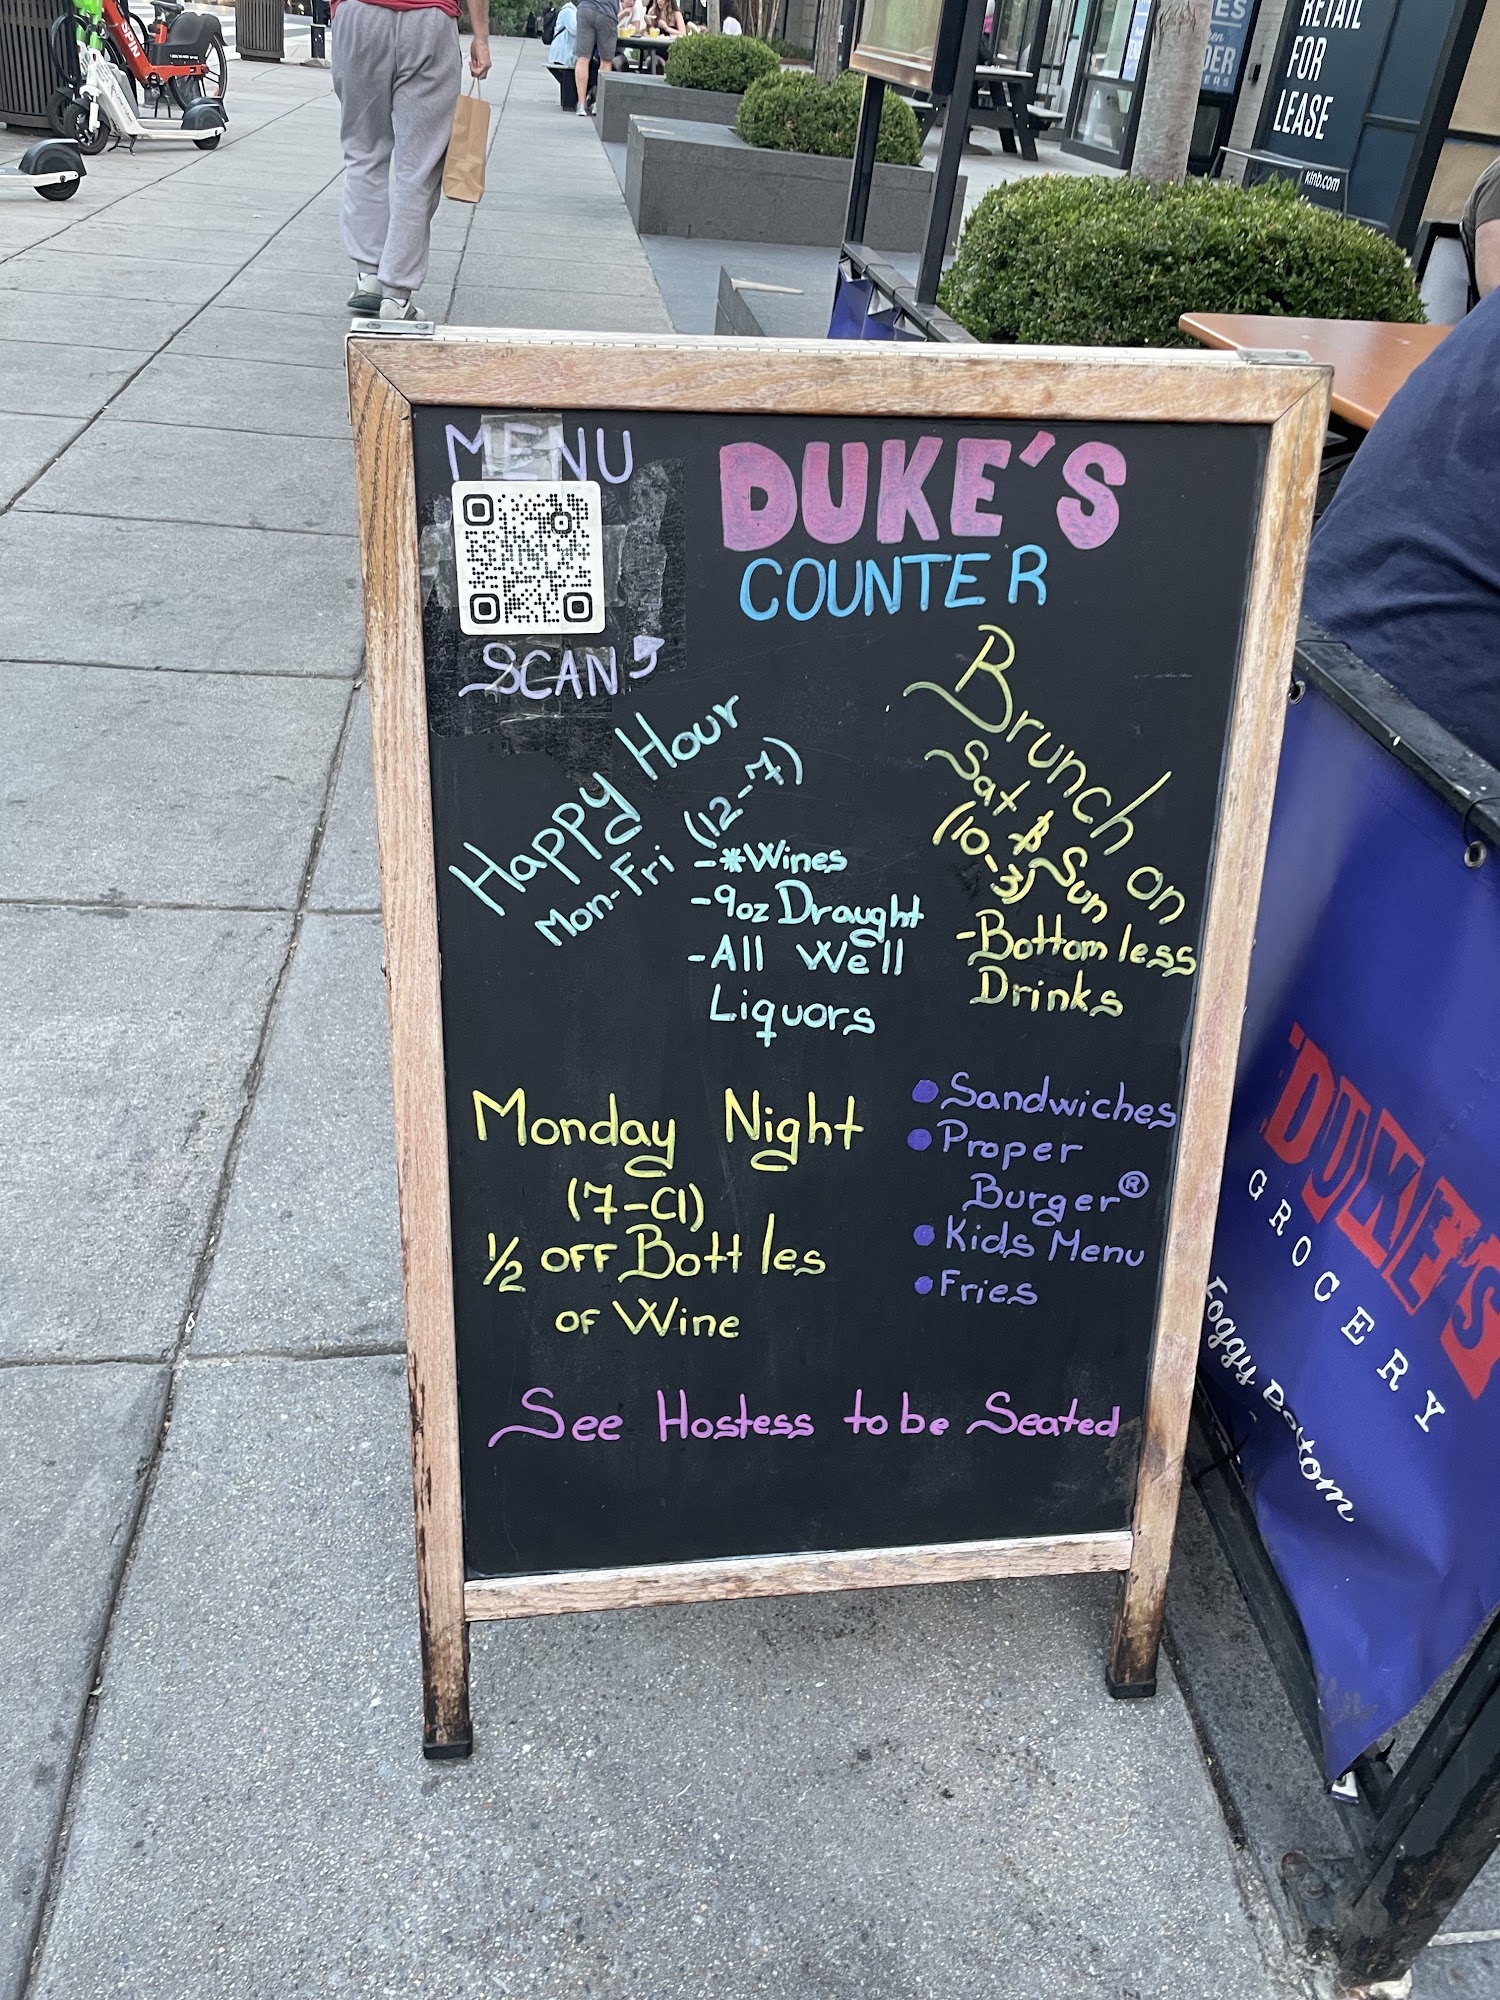 MENU
SCAN
DUKE'S
COUNTER
Happy Hour
Mon-Fri (12-7)
-*Wines
-9oz Draught
-All Well
Liquors
Brunch on
Sat & Sun
(10-3)
-Bottomless
Drinks
Monday Night
(7-Cl)
½ OFF Bottles
OF Wine
• Sandwiches
• Proper
Burger®
• Kids Menu
• Fries
See Hostess to be Seated
DUKE'S
GROCERY
Foggy Bottom
RETAIL
FOR
LEASE
klnb.com
SPIN